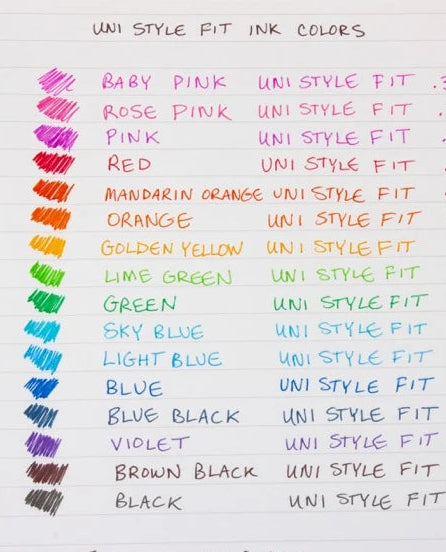 UNI STYLE FIT INK COLORS
BABY PINK UNI STYLE FIT
ROSE PINK UNI STYLE FIT
PINK UNI STYLE FIT
RED UNI STYLE FIT
MANDARIN ORANGE UNI STYLE FIT
ORANGE UNI STYLE FIT
GOLDEN YELLOW UNI STYLE FIT
LIME GREEN UNI STYLE FIT
GREEN UNI STYLE FIT
SKY BLUE UNI STYLE FIT
LIGHT BLUE UNI STYLE FIT
BLUE UNI STYLE FIT
BLUE BLACK UNI STYLE FIT
VIOLET UNI STYLE FIT
BROWN BLACK UNI STYLE FIT
BLACK UNI STYLE FIT